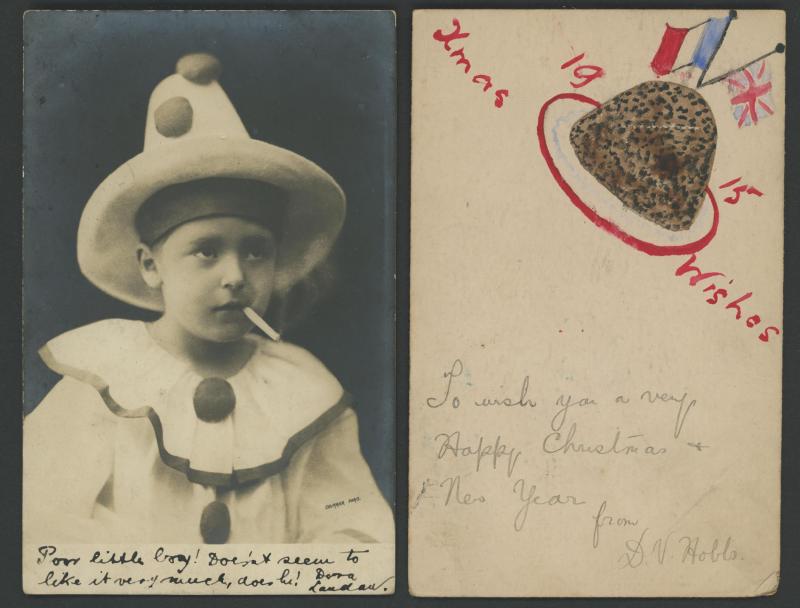 Poor little boy! Does'nt seem to
like it very much, does he! Dora
Landau.
Xmas
19
15
Wishes
To wish you a very
Happy Christmas +
New Year
from
D.V. Hobbs.